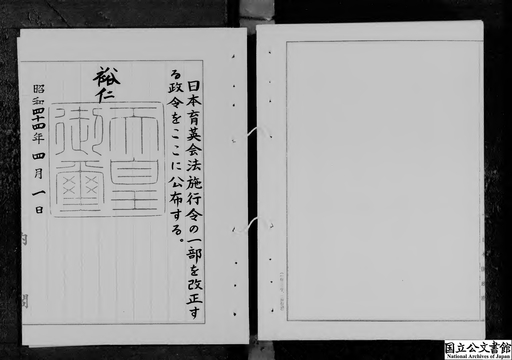 日本育英会法施行令の一部を改正す
る政令をここに公布する。
裕仁
天皇
御璽
昭和四十四年四月一日
内閣
国立公文書館
National Archives of Japan